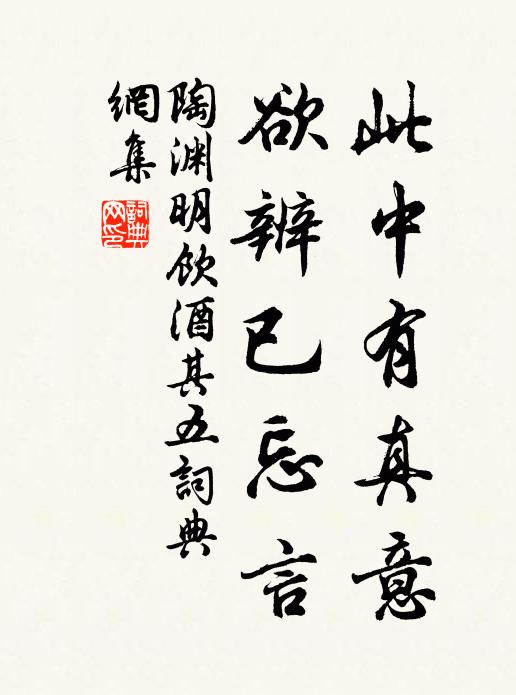 此中有真意
欲辨已忘言
陶渊明饮酒其五詞典
網集
詞典
网印